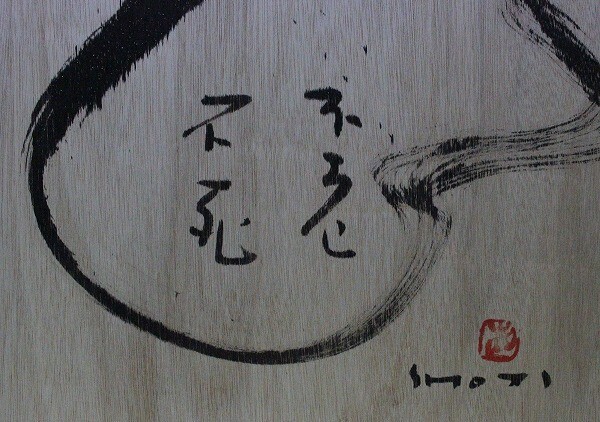 不老
不死
SHOJI